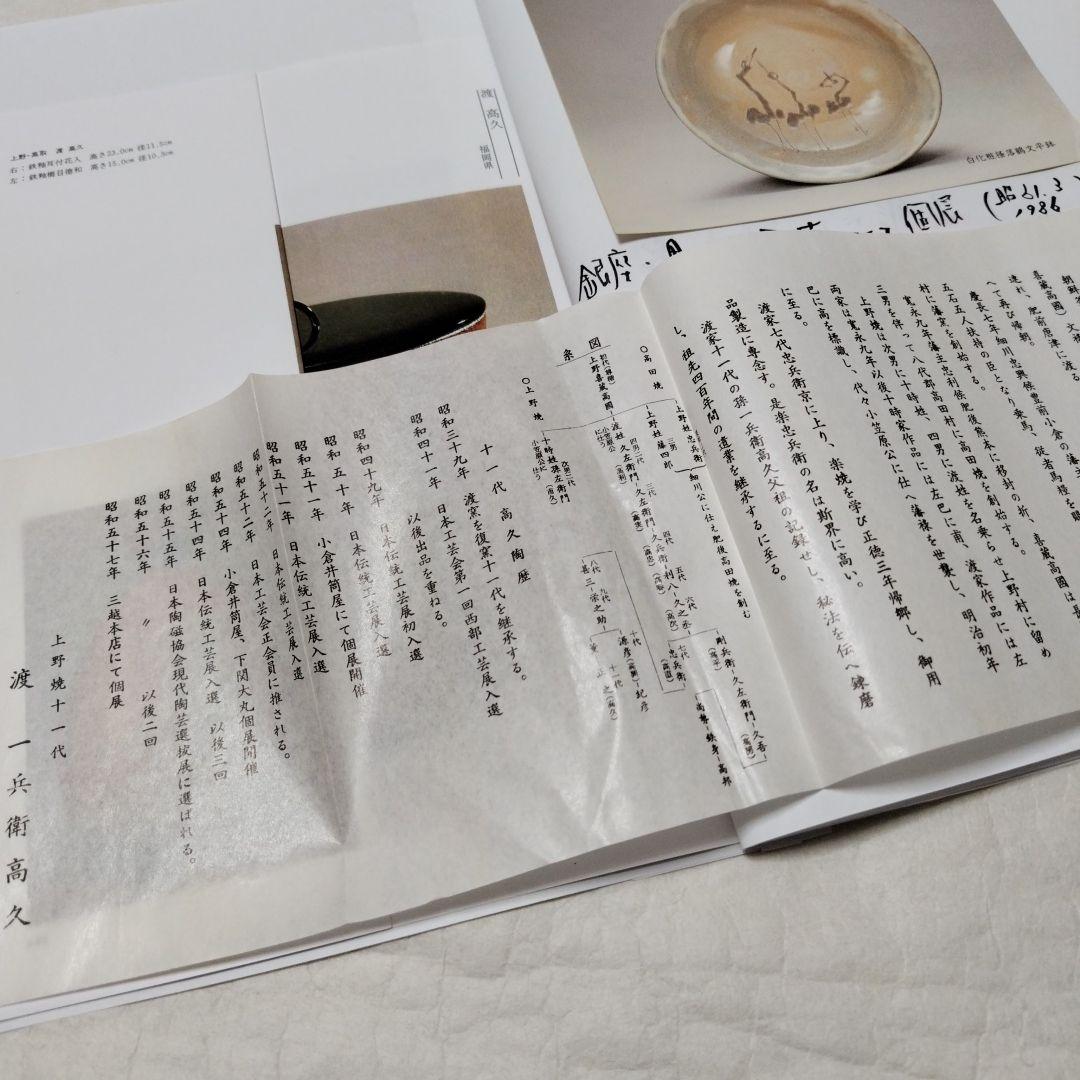 上野・高取　渡　高久
右：鉄釉耳付花入　高さ23.0cm 径11.5cm
左：鉄釉櫛目徳和　高さ15.0cm 径10.5cm
渡　高久
福岡県
白化粧掻落鶴文平鉢
銀座・
個展（昭61.3
1986
喜蔵高國
連れ、肥前唐津に渡る
へて再び帰朝。
慶長七年細川忠興候豊前小倉の藩
五石五人扶持の臣となり乗馬、従者馬糧を賜
村に藩窯を創始する。
寛永九年藩主忠利候肥後熊本に移封の折、喜蔵高國は長
三男を伴って八代郡高田村に高田焼を創始する。
上野焼は次男に十時姓、四男に渡姓を名乗らせ上野村に留め
両家は寛永九年以後十時家作品には左巴に甫、渡家作品には左
巴に高を標識し、代々小笠原公に仕へ藩禄を世襲し、明治初年
に至る。
渡家七代忠兵衛京に上り、楽焼を学び正徳三年帰郷し、御用
品製造に専念す。是楽忠兵衛の名は斯界に高い。
渡家十一代の孫一兵衛高久父祖の記録せし、秘法を伝へ錬磨
し、祖先四百年間の道業を継承するに至る。
系図
〇高田焼
上野姓忠兵衛
細川公に仕え肥後高田焼を創む
三男
上野姓藤四郎
上野喜蔵高國
四男二代
渡姓久左衛門
小笠原公に仕う
三代
久兵衛
四代
利八
五代
久之丞
六代
忠兵衛
七代
剛兵衛
久左衛門
久吾
尚弊
鉄身
高邦
八代
吾三
九代
栄之助
十代
源彦
紀彦
十一代
次男二代
十時姓孫左衛門
小笠原公に仕う
〇上野焼
十一代　高久陶歴
昭和三十九年　渡窯を復窯十一代を継承する。
昭和四十一年　日本工芸会第一回西部工芸展入選
以後出品を重ねる。
昭和四十九年　日本伝統工芸展初入選
昭和五十年　日本伝統工芸展入選
昭和五十一年　小倉井筒屋にて個展開催
昭和五十一年　日本伝統工芸展入選
昭和五十二年　日本伝統工芸展入選
昭和五十二年　日本工芸会正会員に推される。
昭和五十四年　小倉井筒屋、下関大丸個展開催
昭和五十四年　日本伝統工芸展入選　以後三回
昭和五十五年　日本陶磁協会現代陶芸選抜展に選ばれる。
昭和五十六年　〃　以後二回
昭和五十七年　三越本店にて個展
上野焼十一代
渡　一兵衛高久